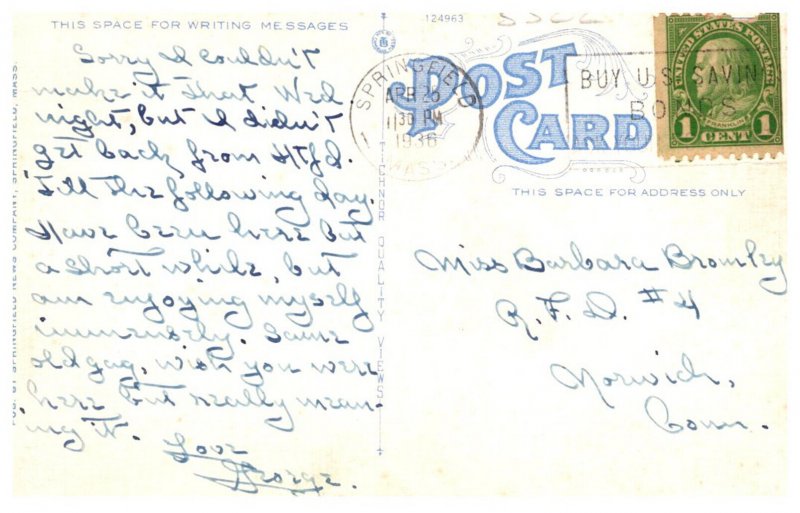 THIS SPACE FOR WRITING MESSAGES
Sorry I couldn't
make it that Wed.
night, but I didn't
get back from Htfd.
'Till the following day.
Have been here but
a short while, but
am enjoying myself
immensely. Same
old gag, wish you were
here but really mean-
ing it.
Love
George.
PUB. BY SPRINGFIELD NEWS COMPANY, SPRINGFIELD, MASS.
TICHNOR QUALITY VIEWS
124963
POST
CARD
SPRINGFIELD
APR 20
11 30 PM
1936
MASS.
BUY U.S. SAVIN
BONDS
UNITED STATES POSTAGE
FRANKLIN
1 CENT 1
THIS SPACE FOR ADDRESS ONLY
Miss Barbara Bromley
R. F. D. #4
Norwich,
Conn.